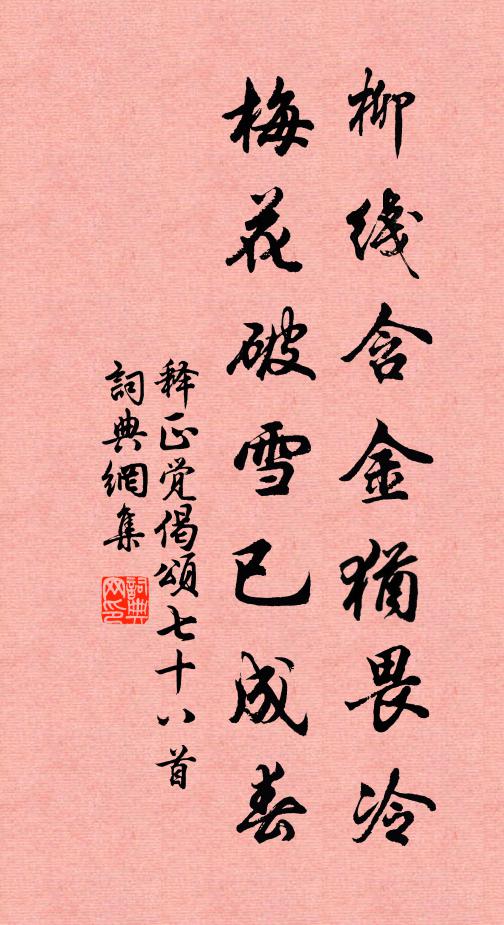 柳线含金犹畏冷
梅花破雪已成春
释正觉偈颂七十八首
詞典網集
詞典
网印